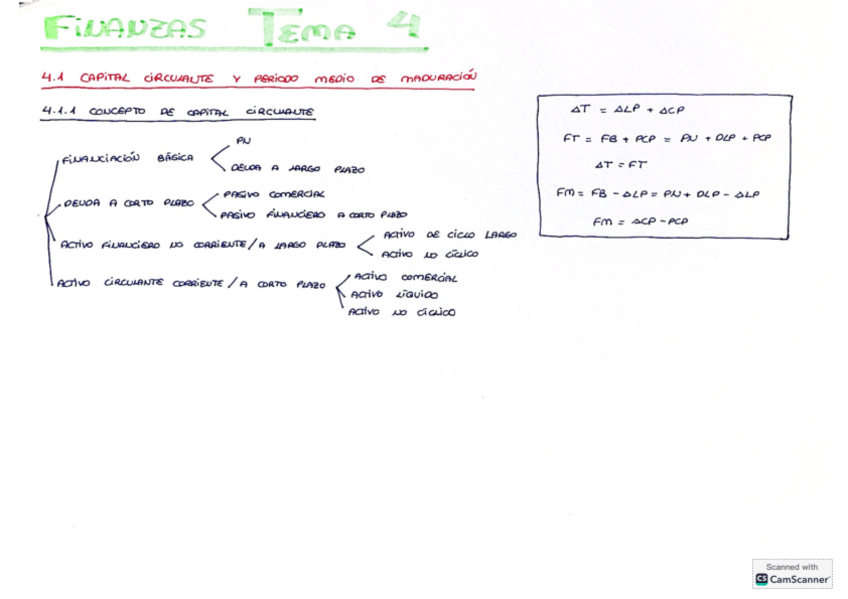 FINANZAS TEMA 4
4.1 CAPITAL CIRCULANTE Y PERIODO MEDIO DE MADURACIÓN
4.1.1 CONCEPTO DE CAPITAL CIRCULANTE
FINANCIACIÓN BÁSICA
PN
DEUDA A LARGO PLAZO
DEUDA A CORTO PLAZO
PASIVO COMERCIAL
PASIVO FINANCIERO A CORTO PLAZO
ACTIVO FINANCIERO NO CORRIENTE / A LARGO PLAZO
ACTIVO DE CICLO LARGO
ACTIVO NO CÍCLICO
ACTIVO CIRCULANTE CORRIENTE / A CORTO PLAZO
ACTIVO COMERCIAL
ACTIVO LÍQUIDO
ACTIVO NO CÍCLICO
AT = ALP + ACP
FT = FB + PCP = PN + DLP + PCP
AT = FT
FM = FB - ALP = PN + DLP - ALP
FM = ACP - PCP
Scanned with
CS CamScanner